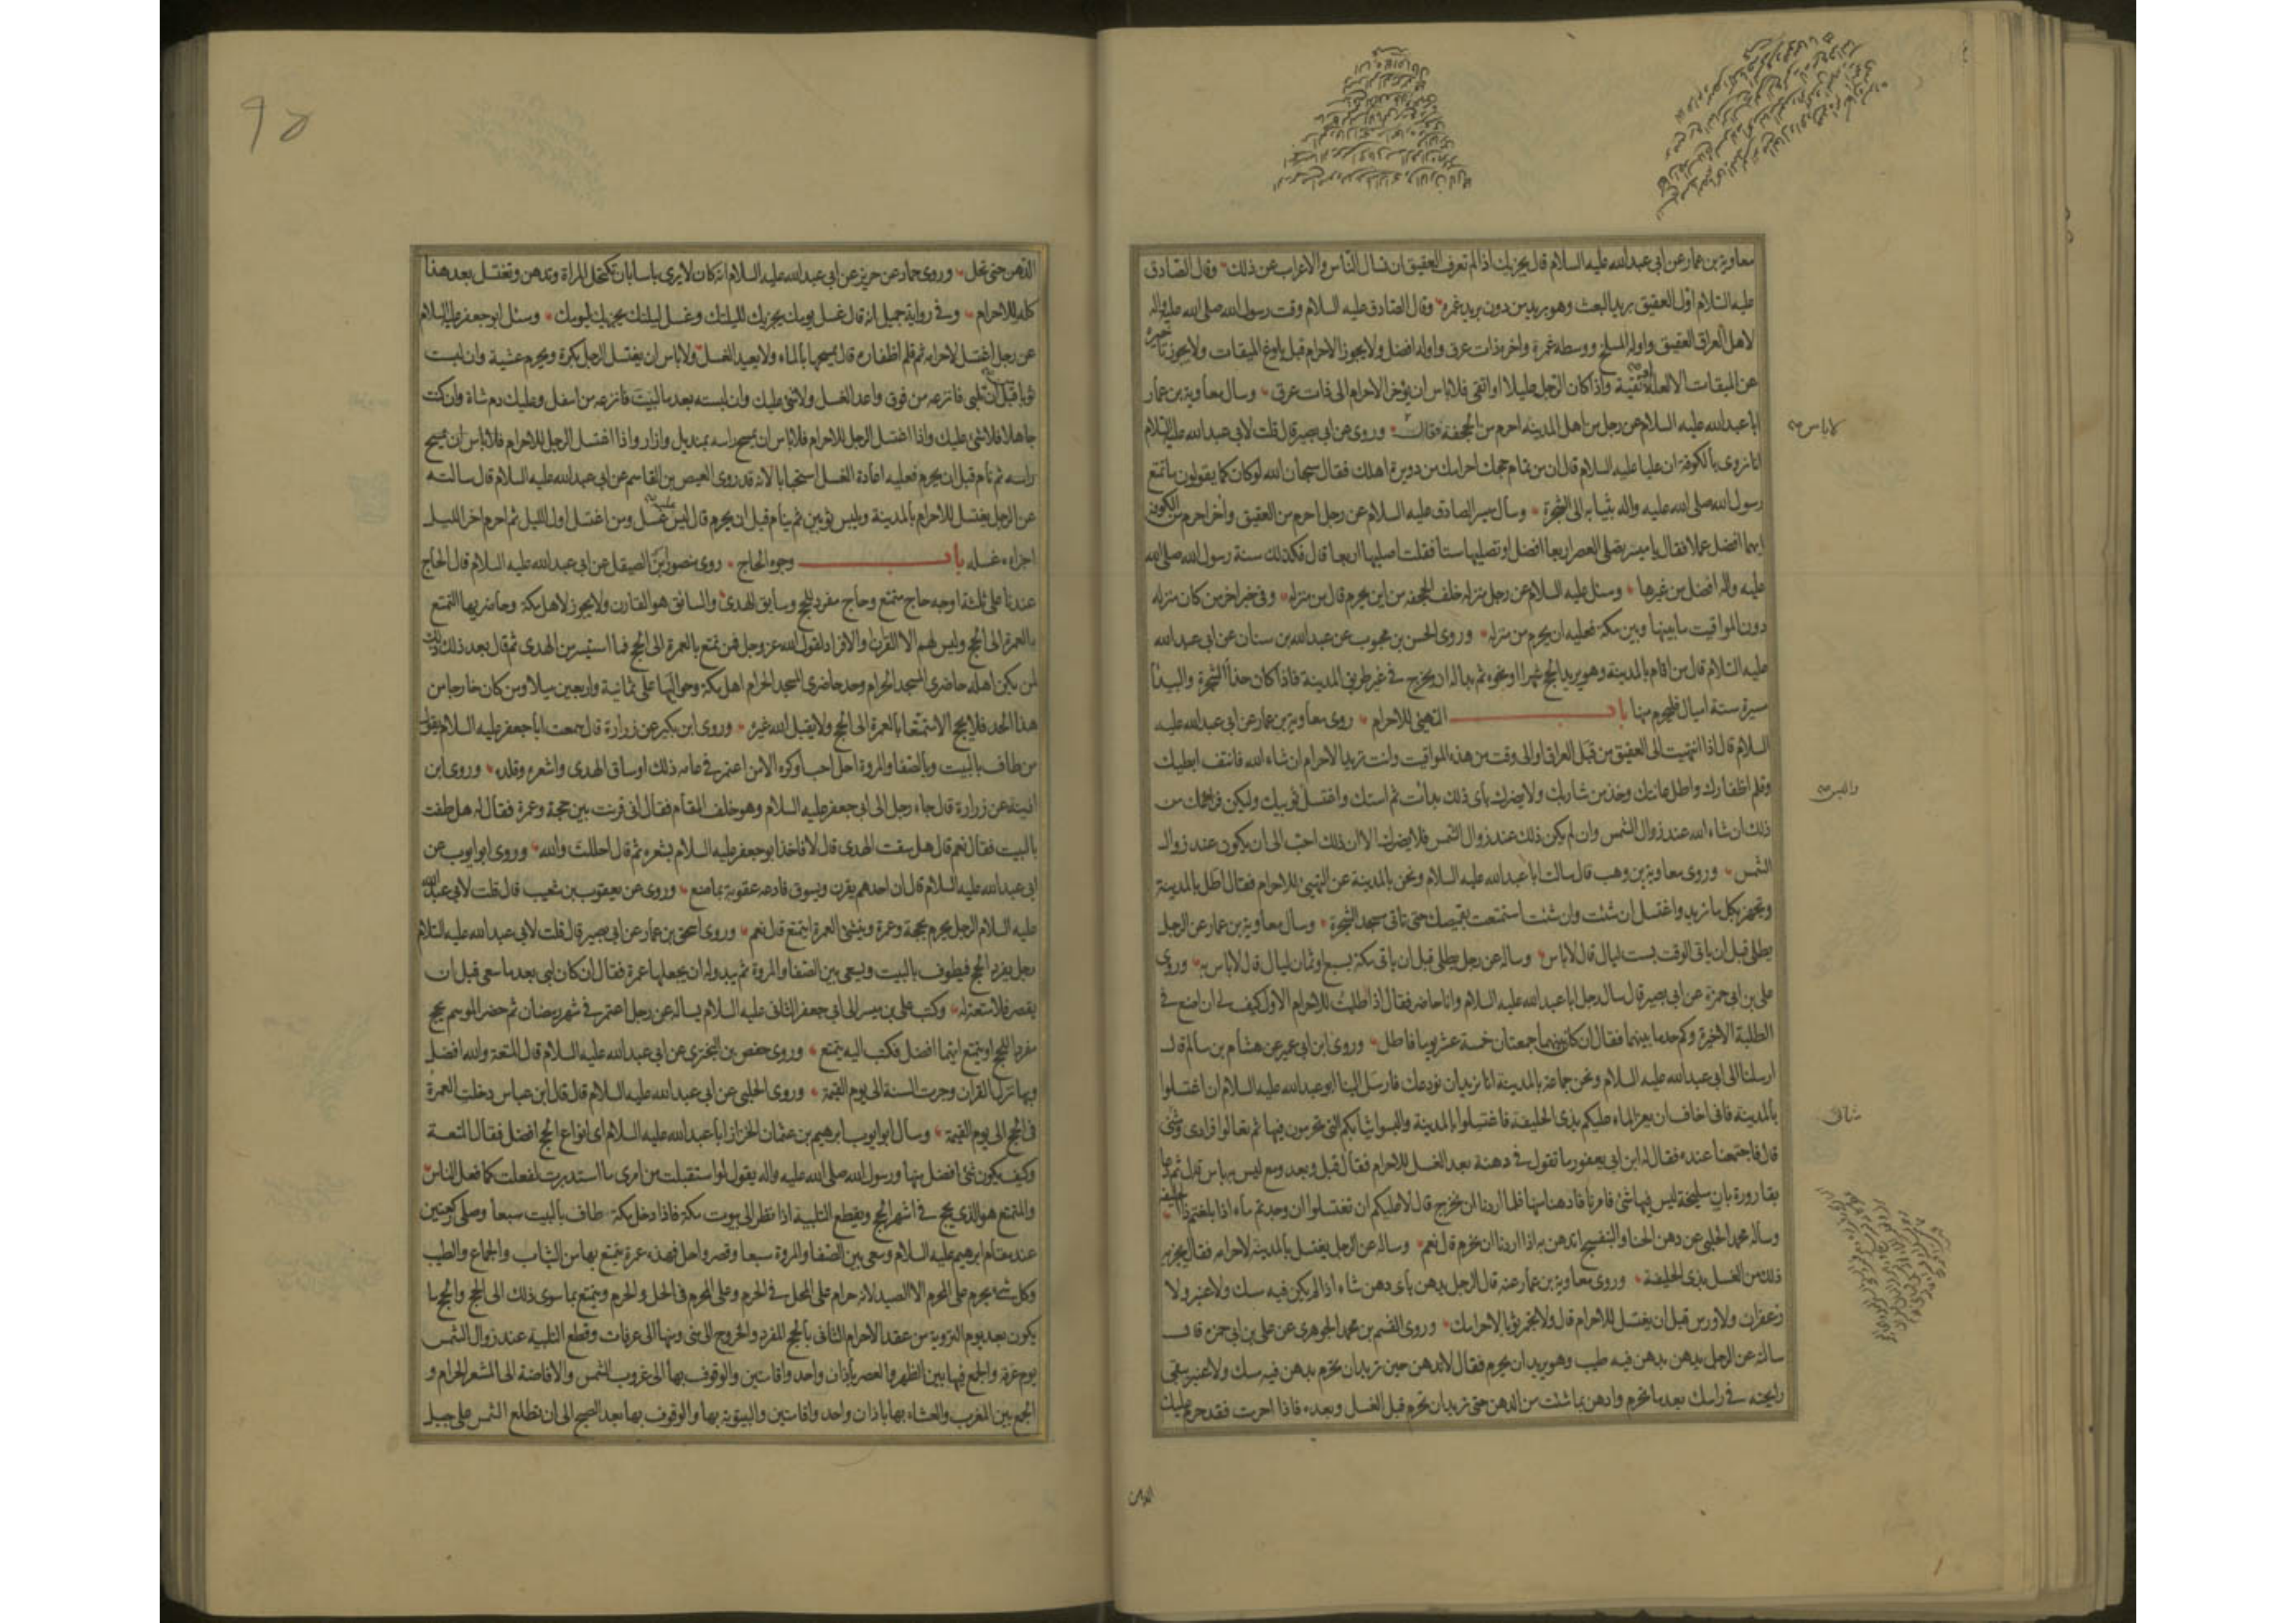 معاوية بن عمار عن ابى عبدالله عليه السلام قال يجزيك اذا لم تعرف العقيق ان تسال الناس والاعراب عن ذلك وقال الصادق
عليه السلام اول العقيق بريد البعث وهو بريد من دون بريد غمرة وقال الصادق عليه السلام وقت رسول الله صلى الله عليه واله
لاهل العراق العقيق واوله المسلخ ووسطه غمرة واخره ذات عرق واوله افضل ولا يجوز الاحرام قبل بلوغ الميقات ولا يجوز تأخيره
عن الميقات الا لعلة او تقية واذا كان الرجل عليلا او اتقى فلا باس ان يؤخر الاحرام الى ذات عرق وسال معاوية بن عمار
ابا عبدالله عليه السلام عن رجل من اهل المدينة احرم من الجحفة فقال وروى عن ابى بصير قال قلت لابى عبدالله عليه السلام
لا باس
انا نروى بالكوفة ان عليا عليه السلام قال ان من تمام حجك احرامك من دويرة اهلك فقال سبحان الله لو كان كما يقولون ما تمتع
رسول الله صلى الله عليه واله بثيابه الى الشجرة وسال ميسر الصادق عليه السلام عن رجل احرم من العقيق واخر احرم من الكوفة
ايهما افضل عملا فقال يا ميسر تصلى العصر اربعا افضل او تصليها ستا فقلت اصليها اربعا قال فكذلك سنة رسول الله صلى الله
عليه واله افضل من غيرها وسئل عليه السلام عن رجل منزله خلف الجحفة من اين يحرم قال من منزله وفى خبر اخر من كان منزله
دون المواقيت ما بينها وبين مكة فعليه ان يحرم من منزله وروى الحسن بن محبوب عن عبدالله بن سنان عن ابى عبدالله
عليه السلام قال من اقام بالمدينة وهو يريد الحج شهرا او نحوه ثم بدا له ان يخرج فى غير طريق المدينة فاذا كان حذاء الشجرة والبيداء
مسيرة ستة اميال فليحرم منها باب التهيئ للاحرام روى معاوية بن عمار عن ابى عبدالله عليه
السلام قال اذا انتهيت الى العقيق من قبل العراق او الى وقت من هذه المواقيت وانت تريد الاحرام ان شاء الله فانتف ابطيك
وقلم اظفارك واطل عانتك وخذ من شاربك ولا يضرك باى ذلك بدأت ثم استك واغتسل ثوبيك وليكن فراغك من
والبس
ذلك ان شاء الله عند زوال الشمس وان لم يكن ذلك عند زوال الشمس فلا يضرك الا ان ذلك احب الى ان يكون عند زوال
الشمس وروى معاوية بن وهب قال سالت ابا عبدالله عليه السلام ونحن بالمدينة عن التهيئ للاحرام فقال اطل بالمدينة
وتجهز بكل ما تريد واغتسل ان شئت وان شئت استمتعت بقميصك حتى تاتى مسجد الشجرة وسال معاوية بن عمار عن الرجل
يطلى قبل ان ياتى الوقت بست ليال قال لا باس وساله عن رجل يطلى قبل ان ياتى مكة بسبع او ثمان ليال قال لا باس به وروى
على بن ابى حمزة عن ابى بصير قال سال رجل ابا عبدالله عليه السلام وانا حاضر فقال اذا اطليت للاحرام الاول كيف لى ان اصنع فى
الطلية الاخيرة وكم حد ما بينهما فقال ان كان بينهما جمعتان خمسة عشر يوما فاطل وروى ابن ابى عمير عن هشام بن سالم قال
ارسلنا الى ابى عبدالله عليه السلام ونحن جماعة بالمدينة انا نريد ان نودعك فارسل الينا ابو عبدالله عليه السلام ان اغتسلوا
بالمدينة فانى اخاف ان يعز الماء عليكم بذى الحليفة فاغتسلوا بالمدينة والبسوا ثيابكم التى تحرمون فيها ثم تعالوا فرادى ومثنى
قال فاجتمعنا عنده فقال له ابن ابى يعفور ما تقول فى دهنة بعد الغسل للاحرام فقال قبل وبعد ومع ليس به باس قال ثم دعا
بقارورة بان سليخة ليس فيها شئ فامرنا فادهنا منها فلما اردنا ان نخرج قال لا عليكم ان تغتسلوا ان وجدتم ماء اذا بلغتم ذا الحليفة
وساله محمد الحلبى عن دهن الحناء والبنفسج اندهن به اذا اردنا ان نحرم قال نعم وساله عن الرجل يغتسل بالمدينة لاحرامه فقال يجزيه
ذلك من الغسل بذى الحليفة وروى معاوية بن عمار عنه قال الرجل يدهن باى دهن شاء اذا لم يكن فيه مسك ولا عنبر ولا
زعفران ولا ورس قبل ان يغتسل للاحرام قال ولا تجمر ثوبا لاحرامك وروى القسم بن محمد الجوهرى عن على بن ابى حمزة قال
سالته عن الرجل يدهن بدهن فيه طيب وهو يريد ان يحرم فقال لا تدهن حين تريد ان تحرم بدهن فيه مسك ولا عنبر يبقى
رايحته فى راسك بعد ما تحرم وادهن بما شئت من الدهن حتى تريد ان تحرم قبل الغسل وبعده فاذا احرمت فقد حرم عليك
الدهن
الدهن حتى تحل وروى حماد عن حريز عن ابى عبدالله عليه السلام انه كان لا يرى باسا بان تكتحل المراة وتدهن وتغتسل بعد هذا
كله للاحرام وفى رواية جميل انه قال غسل يومك يجزيك لليلتك وغسل ليلتك يجزيك ليومك وسئل ابو جعفر عليه السلام
عن رجل اغتسل لاحرامه ثم قلم اظفاره قال يمسحها بالماء ولا يعيد الغسل ولا باس ان يغتسل الرجل بكرة ويحرم عشية وان لبست
ثوبا قبل ان تلبى فانزعه من فوق واعد الغسل ولا شئ عليك وان لبسته بعد ما لبيت فانزعه من اسفل وعليك دم شاة وان كنت
جاهلا فلا شئ عليك واذا اغتسل الرجل للاحرام فلا باس ان يمسح راسه بمنديل وازار واذا اغتسل الرجل للاحرام فلا باس ان يمسح
راسه ثم نام قبل ان يحرم فعليه اعادة الغسل استحبابا لانه قد روى العيص بن القاسم عن ابى عبدالله عليه السلام قال سالته
عن الرجل يغتسل للاحرام بالمدينة ويلبس ثوبين ثم ينام قبل ان يحرم قال ليس عليه غسل ومن اغتسل اول الليل ثم احرم اخر الليل
اجزاه غسله باب وجوه الحاج روى منصور الصيقل عن ابى عبدالله عليه السلام قال الحاج
عندنا على ثلثة اوجه حاج متمتع وحاج مفرد للحج وسايق للهدى والسائق هو القارن ولا يجوز لاهل مكة وحاضريها التمتع
بالعمرة الى الحج وليس لهم الا القران والافراد لقول الله عز وجل فمن تمتع بالعمرة الى الحج فما استيسر من الهدى ثم قال بعد ذلك ذلك
لمن لم يكن اهله حاضرى المسجد الحرام وحد حاضرى المسجد الحرام اهل مكة وحواليها على ثمانية واربعين ميلا ومن كان خارجا من
هذا الحد فلا يحج الا متمتعا بالعمرة الى الحج ولا يقبل الله غيره وروى ابن بكير عن زرارة قال سمعت ابا جعفر عليه السلام يقول
من طاف بالبيت وبالصفا والمروة احل احب او كره الا من اعتمر فى عامه ذلك او ساق الهدى واشعره وقلده وروى ابن
اذينة عن زرارة قال جاء رجل الى ابى جعفر عليه السلام وهو خلف المقام فقال انى قرنت بين حجة وعمرة فقال له هل طفت
بالبيت فقال نعم قال هل سقت الهدى قال لا فاخذ ابو جعفر عليه السلام بشعره ثم قال احللت والله وروى ابو ايوب عن
ابى عبدالله عليه السلام قال ان احدهم يقرن ويسوق فادعه عقوبة بما صنع وروى عن يعقوب بن شعيب قال قلت لابى عبدالله
عليه السلام الرجل يحرم بحجة وعمرة وينشئ العمرة ايتمتع قال نعم وروى اسحق بن عمار عن ابى بصير قال قلت لابى عبدالله عليه السلام
رجل يفرد الحج فيطوف بالبيت ويسعى بين الصفا والمروة ثم يبدو له ان يجعلها عمرة فقال ان كان لبى بعد ما سعى قبل ان
يقصر فلا متعة له وكتب على بن ميسر الى ابى جعفر الثانى عليه السلام يساله عن رجل اعتمر فى شهر رمضان ثم حضر الموسم يحج
مفردا للحج او يتمتع ايهما افضل فكتب اليه يتمتع وروى حفص بن البخترى عن ابى عبدالله عليه السلام قال المتعة والله افضل
وبها نزل القران وجرت السنة الى يوم القيمة وروى الحلبى عن ابى عبدالله عليه السلام قال قال ابن عباس دخلت العمرة
فى الحج الى يوم القيمة وسال ابو ايوب ابرهيم بن عثمان الخزاز ابا عبدالله عليه السلام اى انواع الحج افضل فقال المتعة
وكيف يكون شئ افضل منها ورسول الله صلى الله عليه واله يقول لو استقبلت من امرى ما استدبرت لفعلت كما فعل الناس
والمتمتع هو الذى يحج فى اشهر الحج ويقطع التلبية اذا نظر الى بيوت مكة فاذا دخل مكة طاف بالبيت سبعا وصلى ركعتين
عند مقام ابرهيم عليه السلام وسعى بين الصفا والمروة سبعا وقصر واحل فهذه عمرة يتمتع بها من الثياب والجماع والطيب
وكل شئ يحرم على المحرم الا الصيد لانه حرام على المحل فى الحرم وعلى المحرم فى الحل والحرم ويتمتع بما سوى ذلك الى الحج والحج ما
يكون بعد يوم التروية من عقد الاحرام الثانى بالحج المفرد والخروج الى منى ومنها الى عرفات وقطع التلبية عند زوال الشمس
يوم عرفة والجمع فيها بين الظهر والعصر باذان واحد واقامتين والوقوف بها الى غروب الشمس والافاضة الى المشعر الحرام و
الجمع بين المغرب والعشاء بها باذان واحد واقامتين والبيتوتة بها والوقوف بها بعد الصبح الى ان تطلع الشمس على جبل